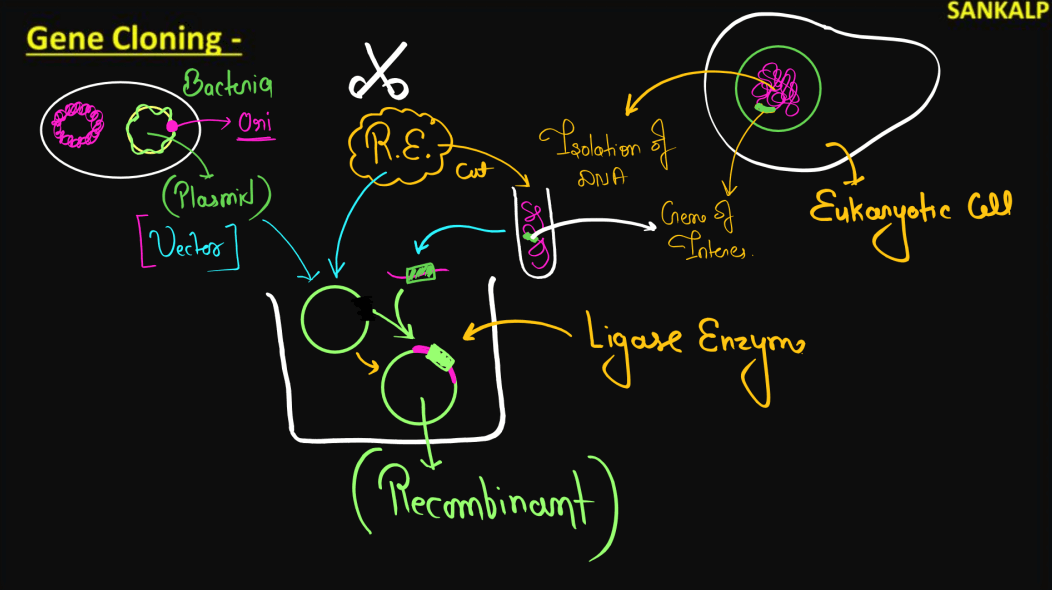 SANKALP
Gene Cloning -
Bacteria
Ori
(Plasmid)
[Vector]
R.E.
Cut
Isolation of
DNA
Gene of
Interes.
Eukaryotic Cell
Ligase Enzym
(Recombinant)